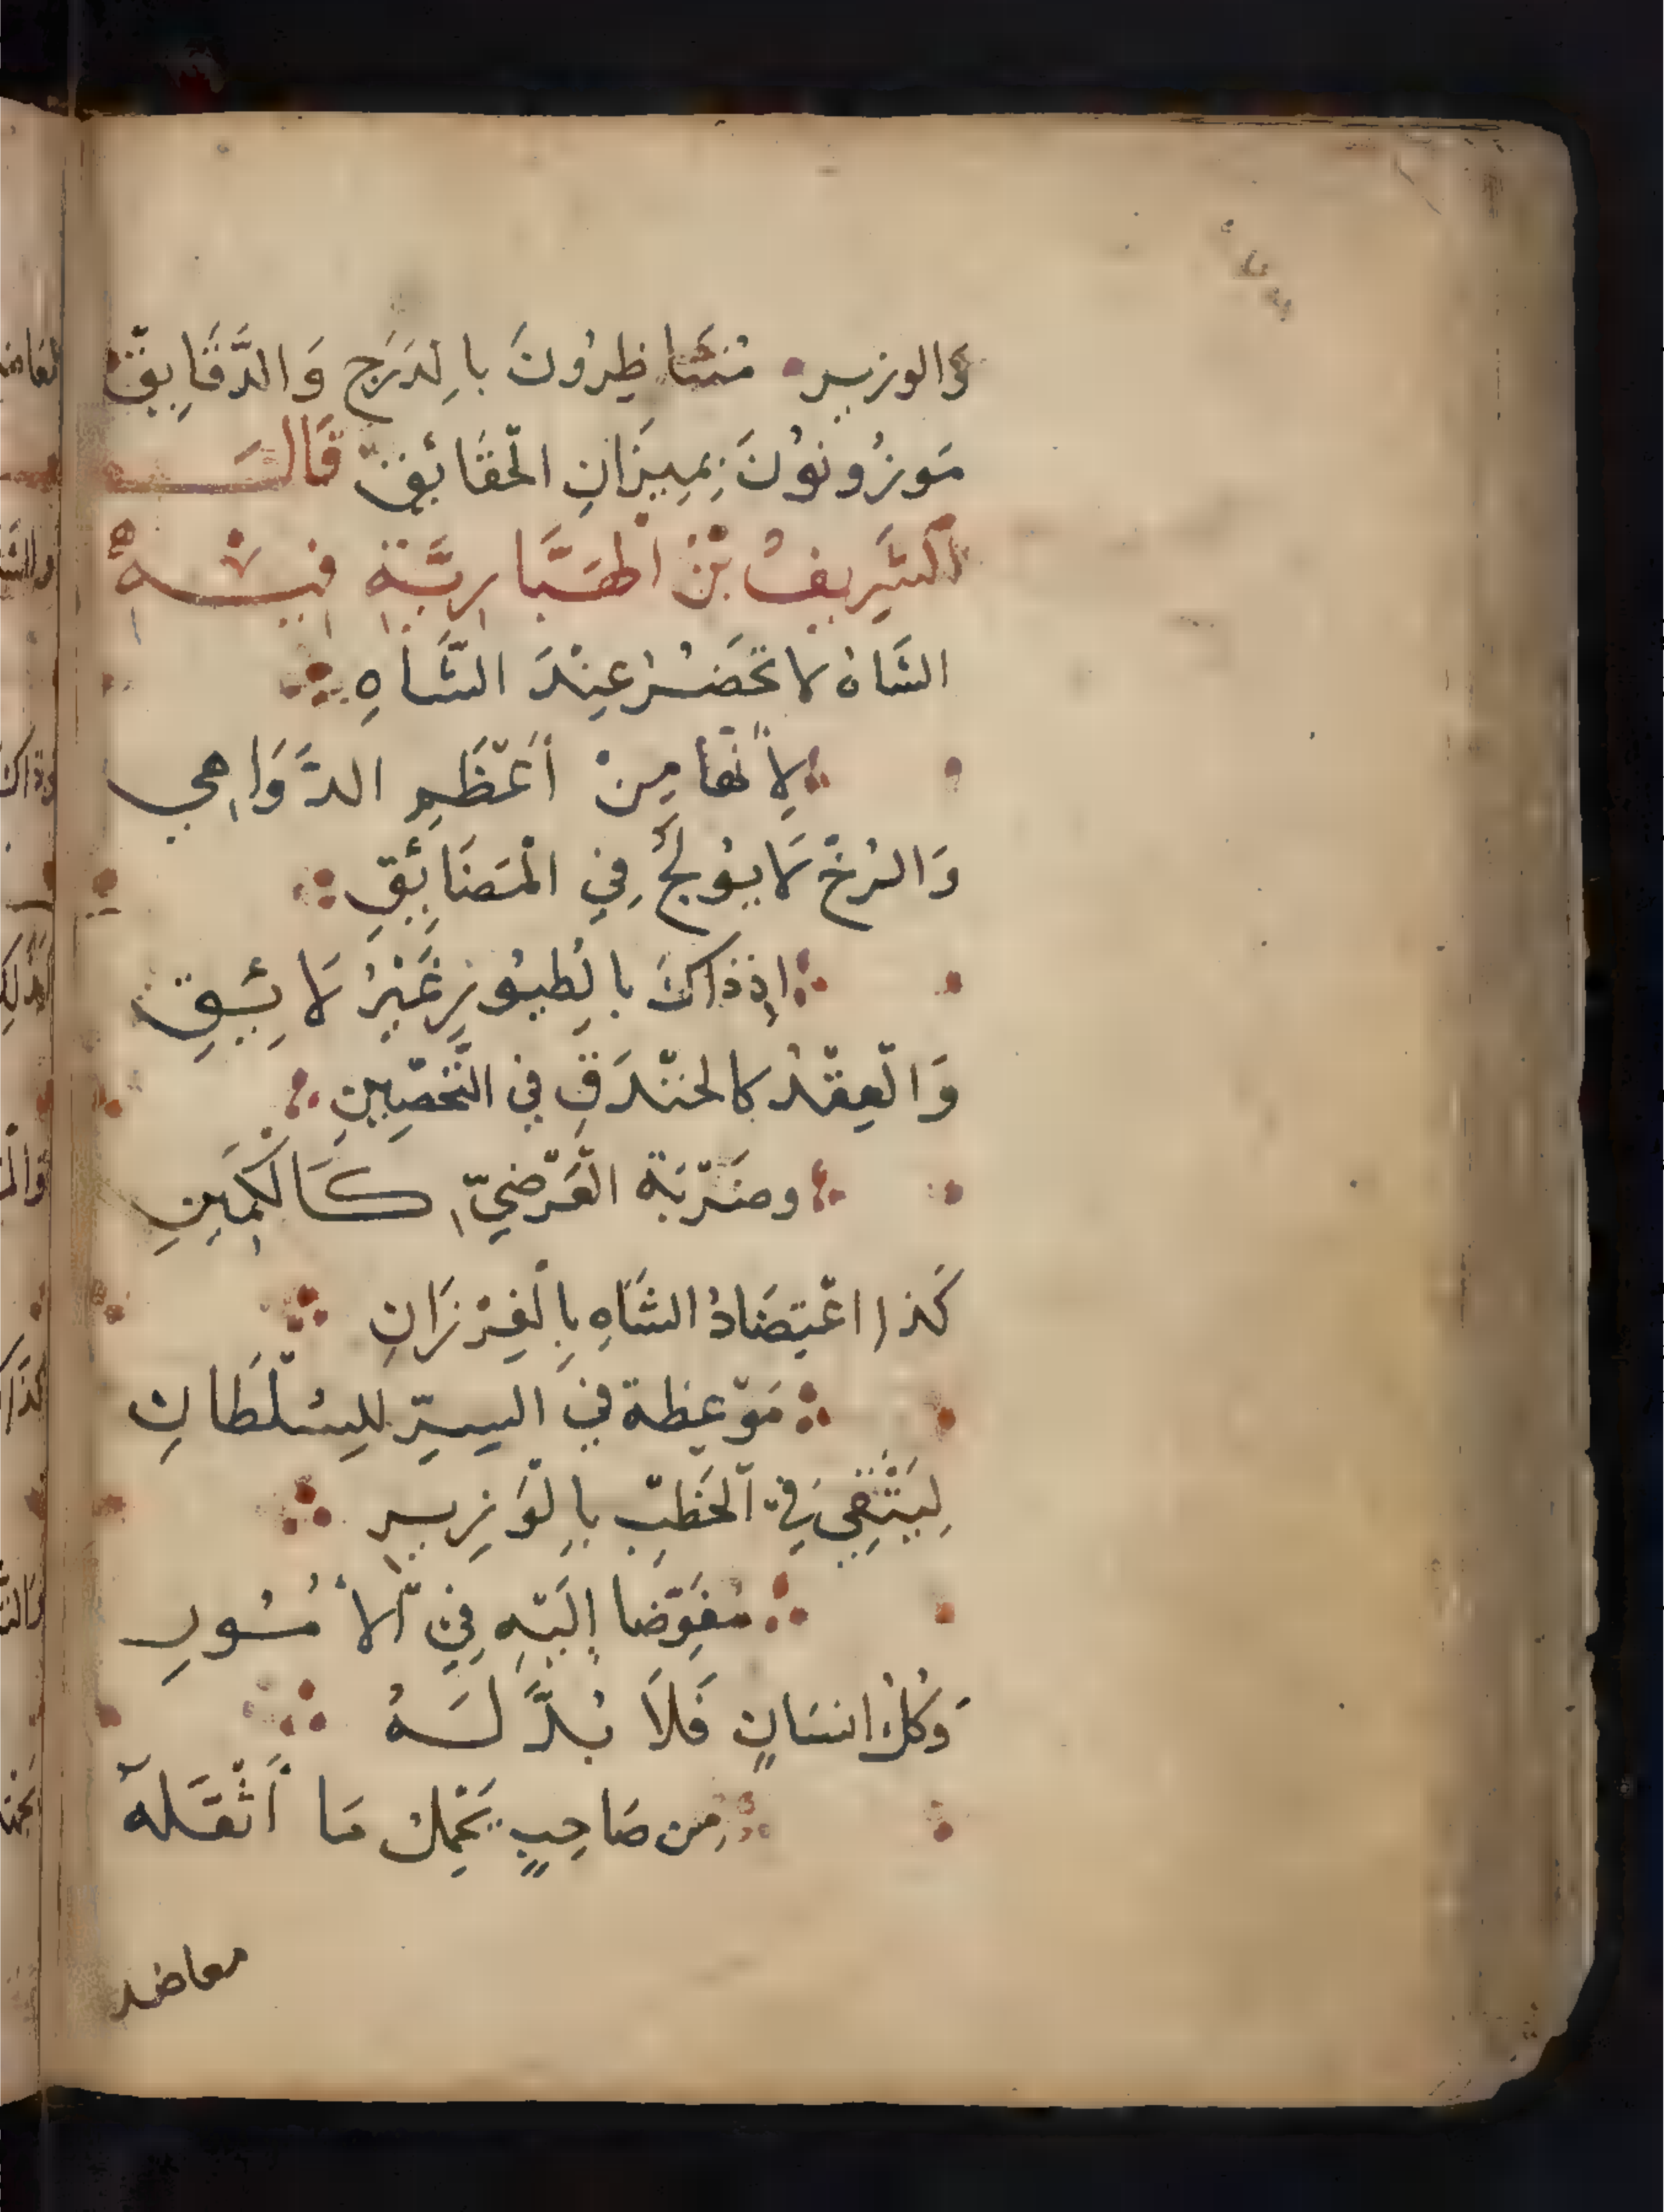 وَالوزيرِ مُتَنَاظِرُونَ بالدَرَجِ وَالدَّقَايِقْ
مَوزُونوُنَ بِمِيزَانِ الْحَقَائِقْ قَالَ
اَلشَّرِيفُ بْنُ الْهَبَّارِيَّةِ فِيْهِ
الشَاهُ لا تحَضُرُ عِنْدَ الشَّاهِ
لِأَنّها مِنْ أَعْظَمِ الدَّوَاهِي
وَالرُخّ لَا يوُلَجُ فِي الْمَضَائِقِ
اِذ ذاكَ بالِطيُورِ غَيْرُ لَائِقِ
وَالْعِقْدُ كالخنْدَقِ في التَّحْصِينِ
وضَرْبَة الْعَرْضيِّ كَالْكَمِينِ
كَذا اعْتِضَادُ الشَاهِ بِالْفِرْزَانِ
مَوْعِظة في السِرِّ للِسُلْطَانِ
لِيَتَّقِي فِي اَلْخَطْبِ بِالْوَزِيرِ
مُفَوِّضا إِلَيْهِ فِي اْلأُمُورِ
وَكُلُّ انسَانٍ فَلَا بُدَّ لَهُ
مِن صَاحِبٍ يَحْمِلُ مَا أَثْقَلَهْ
معاضد